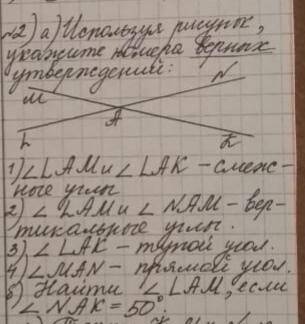 №2) а) Используя рисунок,
укажите номера верных
утверждений:
N
M
A
L
K
1) ∠LAM и ∠LAK – смеж-
ные углы
2) ∠ LAM и ∠ NAM – вер-
тикальные углы.
3) ∠LAK – тупой угол.
4) ∠MAN – прямой угол.
б) Найти ∠LAM, если
∠ NAK = 50°.